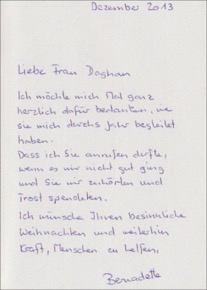 Dezember 2013
Liebe Frau Doghan
Ich möchte mich Mal ganz
herzlich dafür bedanken, wie
sie mich durchs Jahr begleitet
haben.
Dass ich Sie anrufen durfte,
wenn es mir nicht gut ging
und Sie mir zuhörten und
Trost spendeten.
Ich wünsche Ihnen besinnliche
Weihnachten und weiterhin
Kraft, Menschen zu helfen,
Bernadette